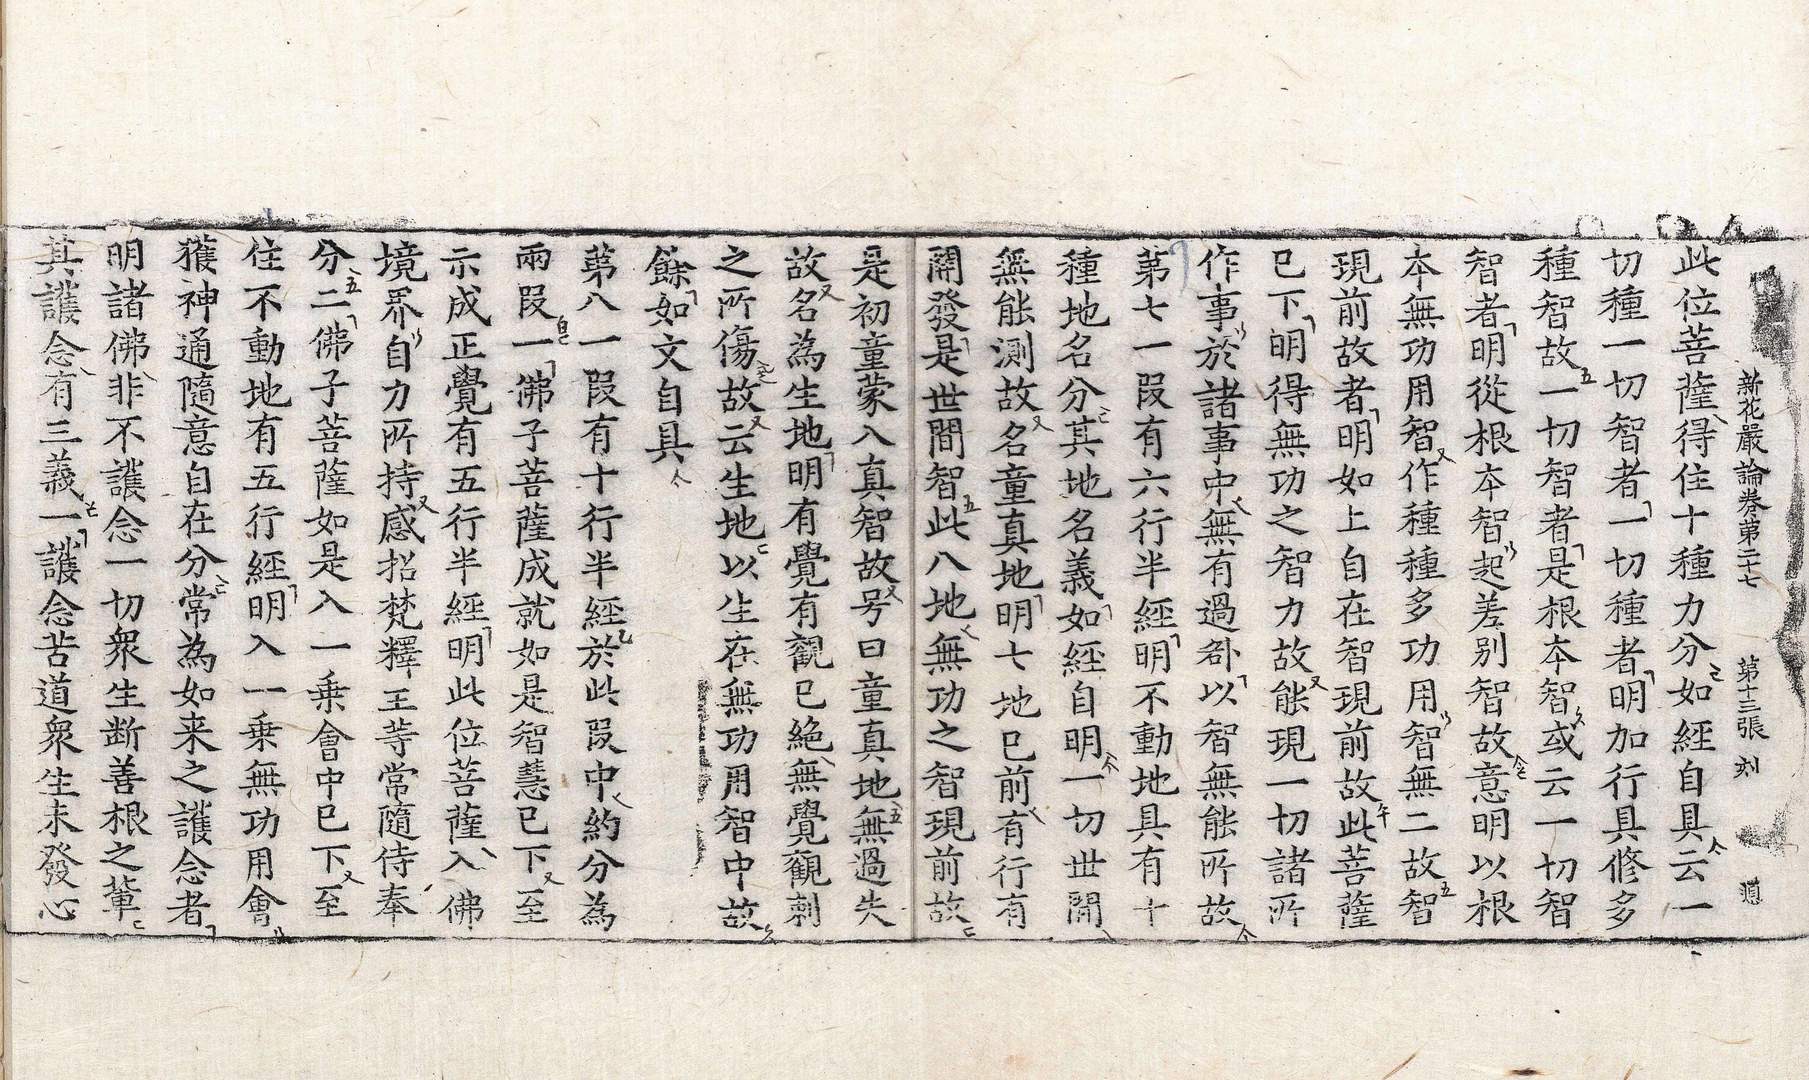 新花嚴論卷第二十七　第十三張　刻　道
此位菩薩得住十種力分如經自具云一
切種一切智者一切種者明加行具修多
種智故一切智者是根本智或云一切智
智者明從根本智起差别智故意明以根
本無功用智作種種多功用智無二故智
現前故者明如上自在智現前故此菩薩
已下明得無功之智力故能現一切諸所
作事於諸事中無有過咎以智無能所故
第七一段有六行半經明不動地具有十
種地名分其地名義如經自明一切世間
無能測故名童真地明七地已前有行有
開發是世間智此八地無功之智現前故
是初童蒙入真智故号曰童真地無過失
故名為生地明有覺有觀已絶無覺觀刺
之所傷故云生地以生在無功用智中故
餘如文自具
第八一段有十行半經於此段中約分為
兩段一佛子菩薩成就如是智慧已下至
示成正覺有五行半經明此位菩薩入佛
境界自力所持感招梵釋王等常隨侍奉
分二佛子菩薩如是入一乗會中已下至
住不動地有五行經明入一乗無功用會
獲神通隨意自在分常為如来之護念者
明諸佛非不護念一切衆生断善根之輩
其護念有三義一護念苦道衆生未發心